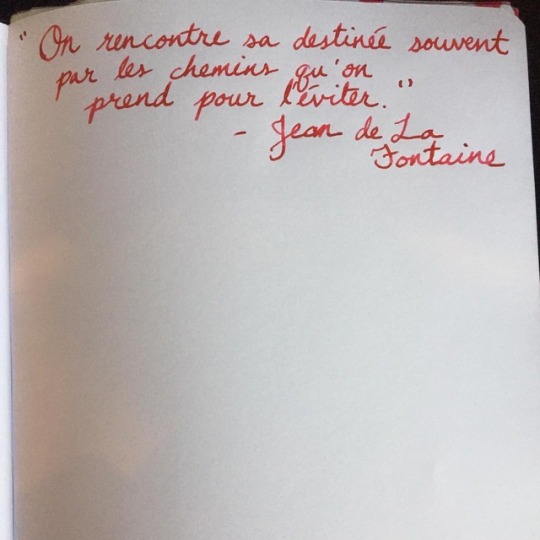 "On rencontre sa destinée souvent
par les chemins qu'on
prend pour l'éviter."
- Jean de La
Fontaine